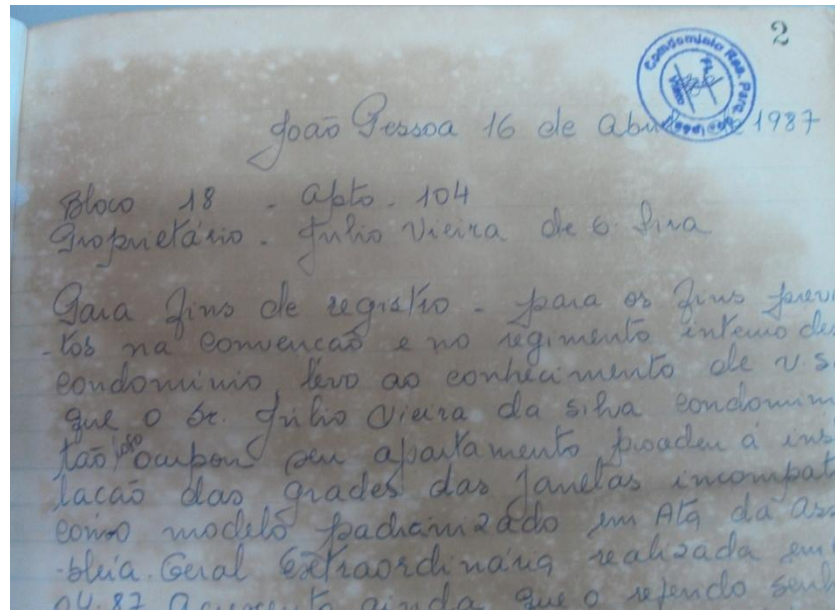 2
Condominio Res. Parq.
João Pessoa 16 de Abril de 1987
Bloco 18 - Apto. 104
Proprietário - Júlio Vieira de
Para fins de registro - para os fins previs
-tos na convencão e no regimento interno des
condominio, levo ao conhecimento de v.s.
que o Sr. Júlio Vieira da silva condomin
tão logo ocupou seu apartamento procedeu á ins
lacão das grades das janelas incompat
como modelo padranizado em Ata da ass
-bléia. Geral Extraordinária realizada em
04.87 Acrescento ainda que o referido senh